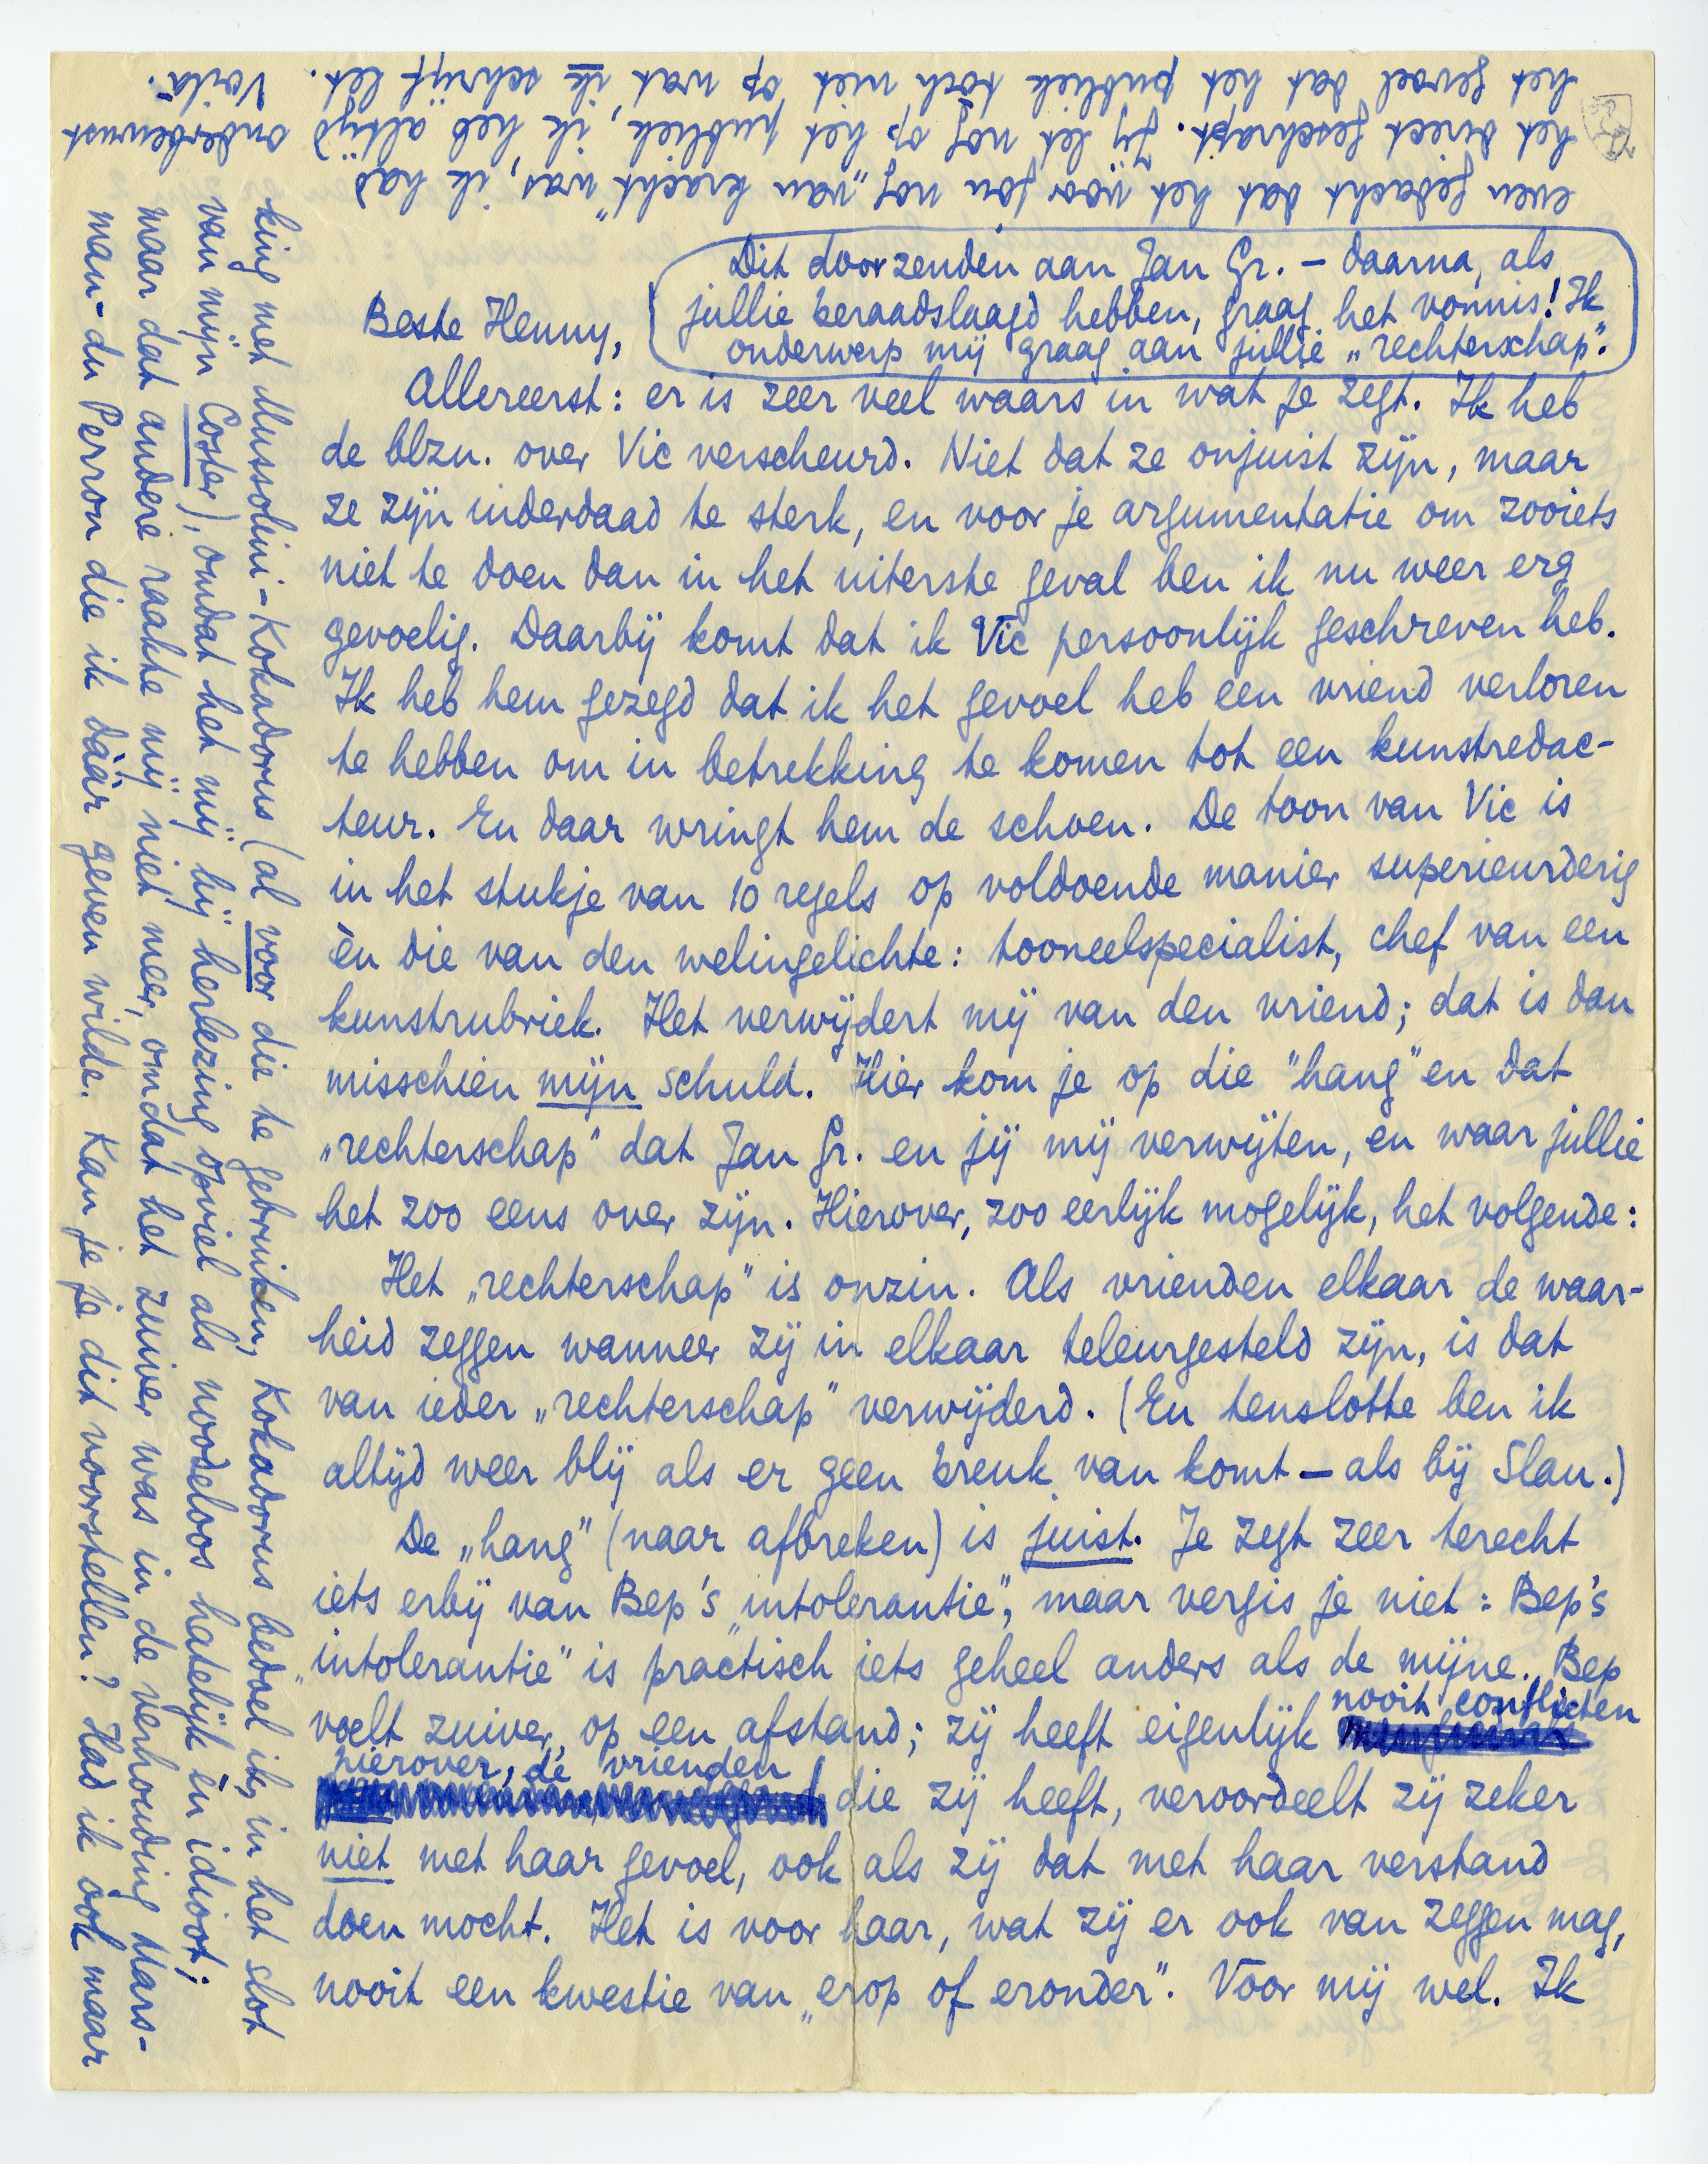 Dit doorzenden aan Jan Gr. – daarna, als
jullie beraadslaagd hebben, graag het vonnis! Ik
onderwerp mij graag aan jullie „rechterschap".
Beste Henny,
Allereerst: er is zeer veel waars in wat je zegt. Ik heb
de blzn. over Vic verscheurd. Niet dat ze onjuist zijn, maar
ze zijn inderdaad te sterk, en voor je argumentatie om zooiets
niet te doen dan in het uiterste geval ben ik nu weer erg
gevoelig. Daarbij komt dat ik Vic persoonlijk geschreven heb.
Ik heb hem gezegd dat ik het gevoel heb een vriend verloren
te hebben om in betrekking te komen tot een kunstredac-
teur. En daar wringt hem de schoen. De toon van Vic is
in het stukje van 10 regels op voldoende manier superieurderig
èn die van den welingelichte: tooneelspecialist, chef van een
kunstrubriek. Het verwijdert mij van den vriend; dat is dan
misschien mijn schuld. Hier kom je op die "hang" en dat
„rechterschap" dat Jan Gr. en jij mij verwijten, en waar jullie
het zoo eens over zijn. Hierover, zoo eerlijk mogelijk, het volgende:
Het „rechterschap" is onzin. Als vrienden elkaar de waar-
heid zeggen wanneer zij in elkaar teleurgesteld zijn, is dat
van ieder „rechterschap" verwijderd. (En tenslotte ben ik
altijd weer blij als er geen breuk van komt – als bij Slau.)
De „hang" (naar afbreken) is juist. Je zegt zeer terecht
iets erbij van Bep's „intolerantie", maar vergis je niet: Bep's
„intolerantie" is practisch iets geheel anders als de mijne. Bep
voelt zuiver, op een afstand; zij heeft eigenlijk nooit conflicten
hierover, de vrienden die zij heeft, veroordeelt zij zeker
niet met haar gevoel, ook als zij dat met haar verstand
doen mocht. Het is voor haar, wat zij er ook van zeggen mag,
nooit een kwestie van „erop of eronder". Voor mij wel. Ik
king met Mussolini-Kokadorus (al voor die te gebruiken, Kokadorus bedoel ik, in het slot
van mijn Coster), omdat het mij bij herlezing opviel als noodeloos hatelijk èn idioot;
maar dat andere raakte mij niet meer, omdat het zuiver was in de verhouding Mars-
man-du Perron die ik dáár geven wilde. Kan je je dit voorstellen? Had ik ook maar
even gedacht dat het vóór jou nog „van kracht" was, ik had
het direct geschrapt. Jij let nog op het publiek, ik heb altijd onderbewust
het gevoel dat het publiek toch niet op wat ik schrijf let. Voilà.